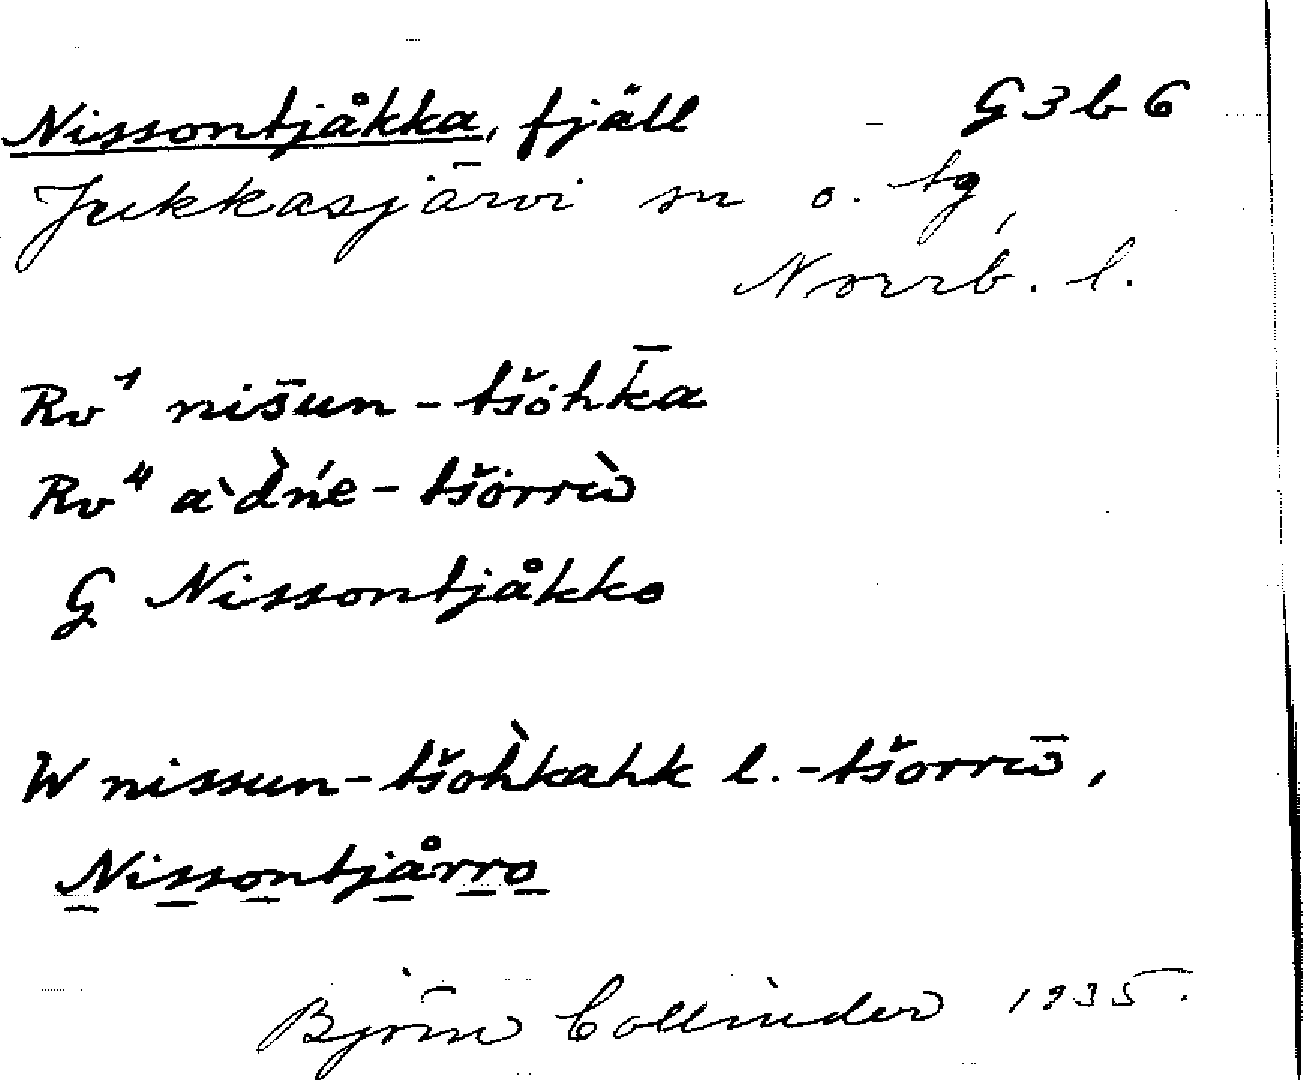 Nissontjåkka, fjäll G3b6
Jukkasjärvi sn o. tg,
Norrb. l.
Rv¹ nis̄un-tšȯhk̄a
Rv⁴ a`d̀ńe-tšȯrrù
G Nissontjåkko
W nissun-tšoh̀kahk l.-tšorrū,
Nissontjårro
Björn Collinder 1935.